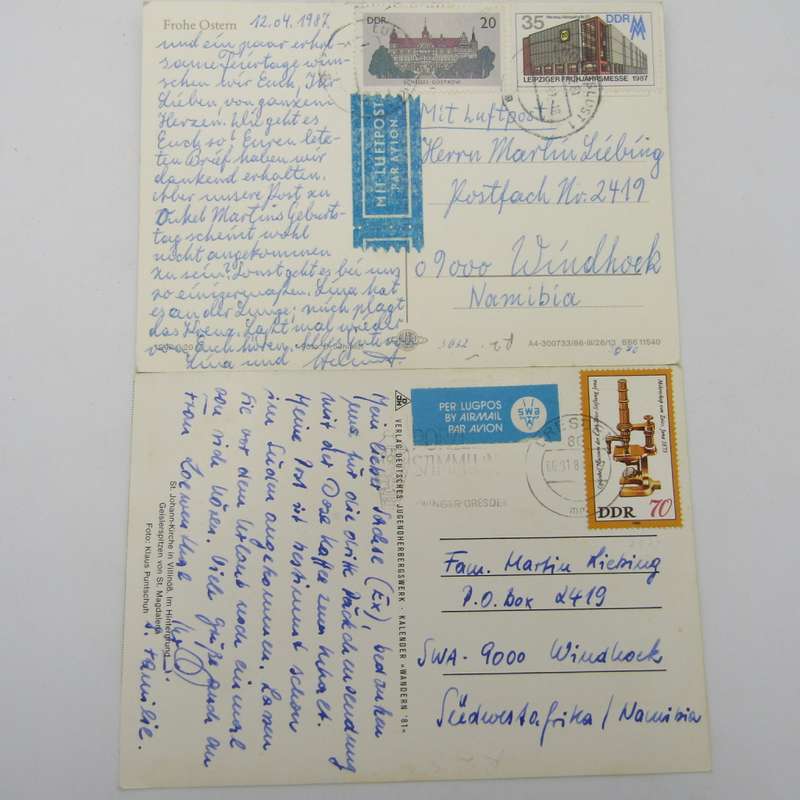 Frohe Ostern 12.04.1987
und ein paar erhol-
same Feiertage wün-
schen wir Euch, Ihr
Lieben, von ganzem
Herzen. Wie geht es
Euch so? Euren letz-
ten Brief haben wir
dankend erhalten.
Aber unsere Post zu
Onkel Martins Geburts-
tag scheint wohl
nicht angekommen
zu sein? Sonst geht es bei uns
so einigermaßen. Lina hat
es an der Lunge; mich plagt
das Kreuz. Laßt mal wieder
von Euch hören. Alles Gute
Lina und Helmut.
DDR 20
SCHLOSS GÜSTROW
35 DDR
LEIPZIGER FRÜHJAHRSMESSE 1987
MIT LUFTPOST
PAR AVION
Mit Luftpost
Herrn Martin Liebing
Postfach Nr. 2419
09000 Windhoek
Namibia
A4-300733/86-III/26/13 666 11540
PER LUGPOS
BY AIRMAIL
PAR AVION
swa
Mikroskop von Zeiss, Jena 1873
DDR 70
VERLAG DEUTSCHES JUGENDHERBERGSWERK · KALENDER »WANDERN '81«
mit der Dose Kaffee zum Inhalt.
Meine Post ist bestimmt schon
im Süden angekommen. Lassen
Sie vor dem Urlaub noch einmal
von sich hören. Viele Grüße auch an
Frau
u. Familie.
St. Johann-Kirche in Villnöß. Im Hintergrund
Geislerspitzen von St. Magdalena
Foto: Klaus Puntschuh
Fam. Martin Liebing
P.O. Box 2419
SWA- 9000 Windhoek
Südwestafrika / Namibia